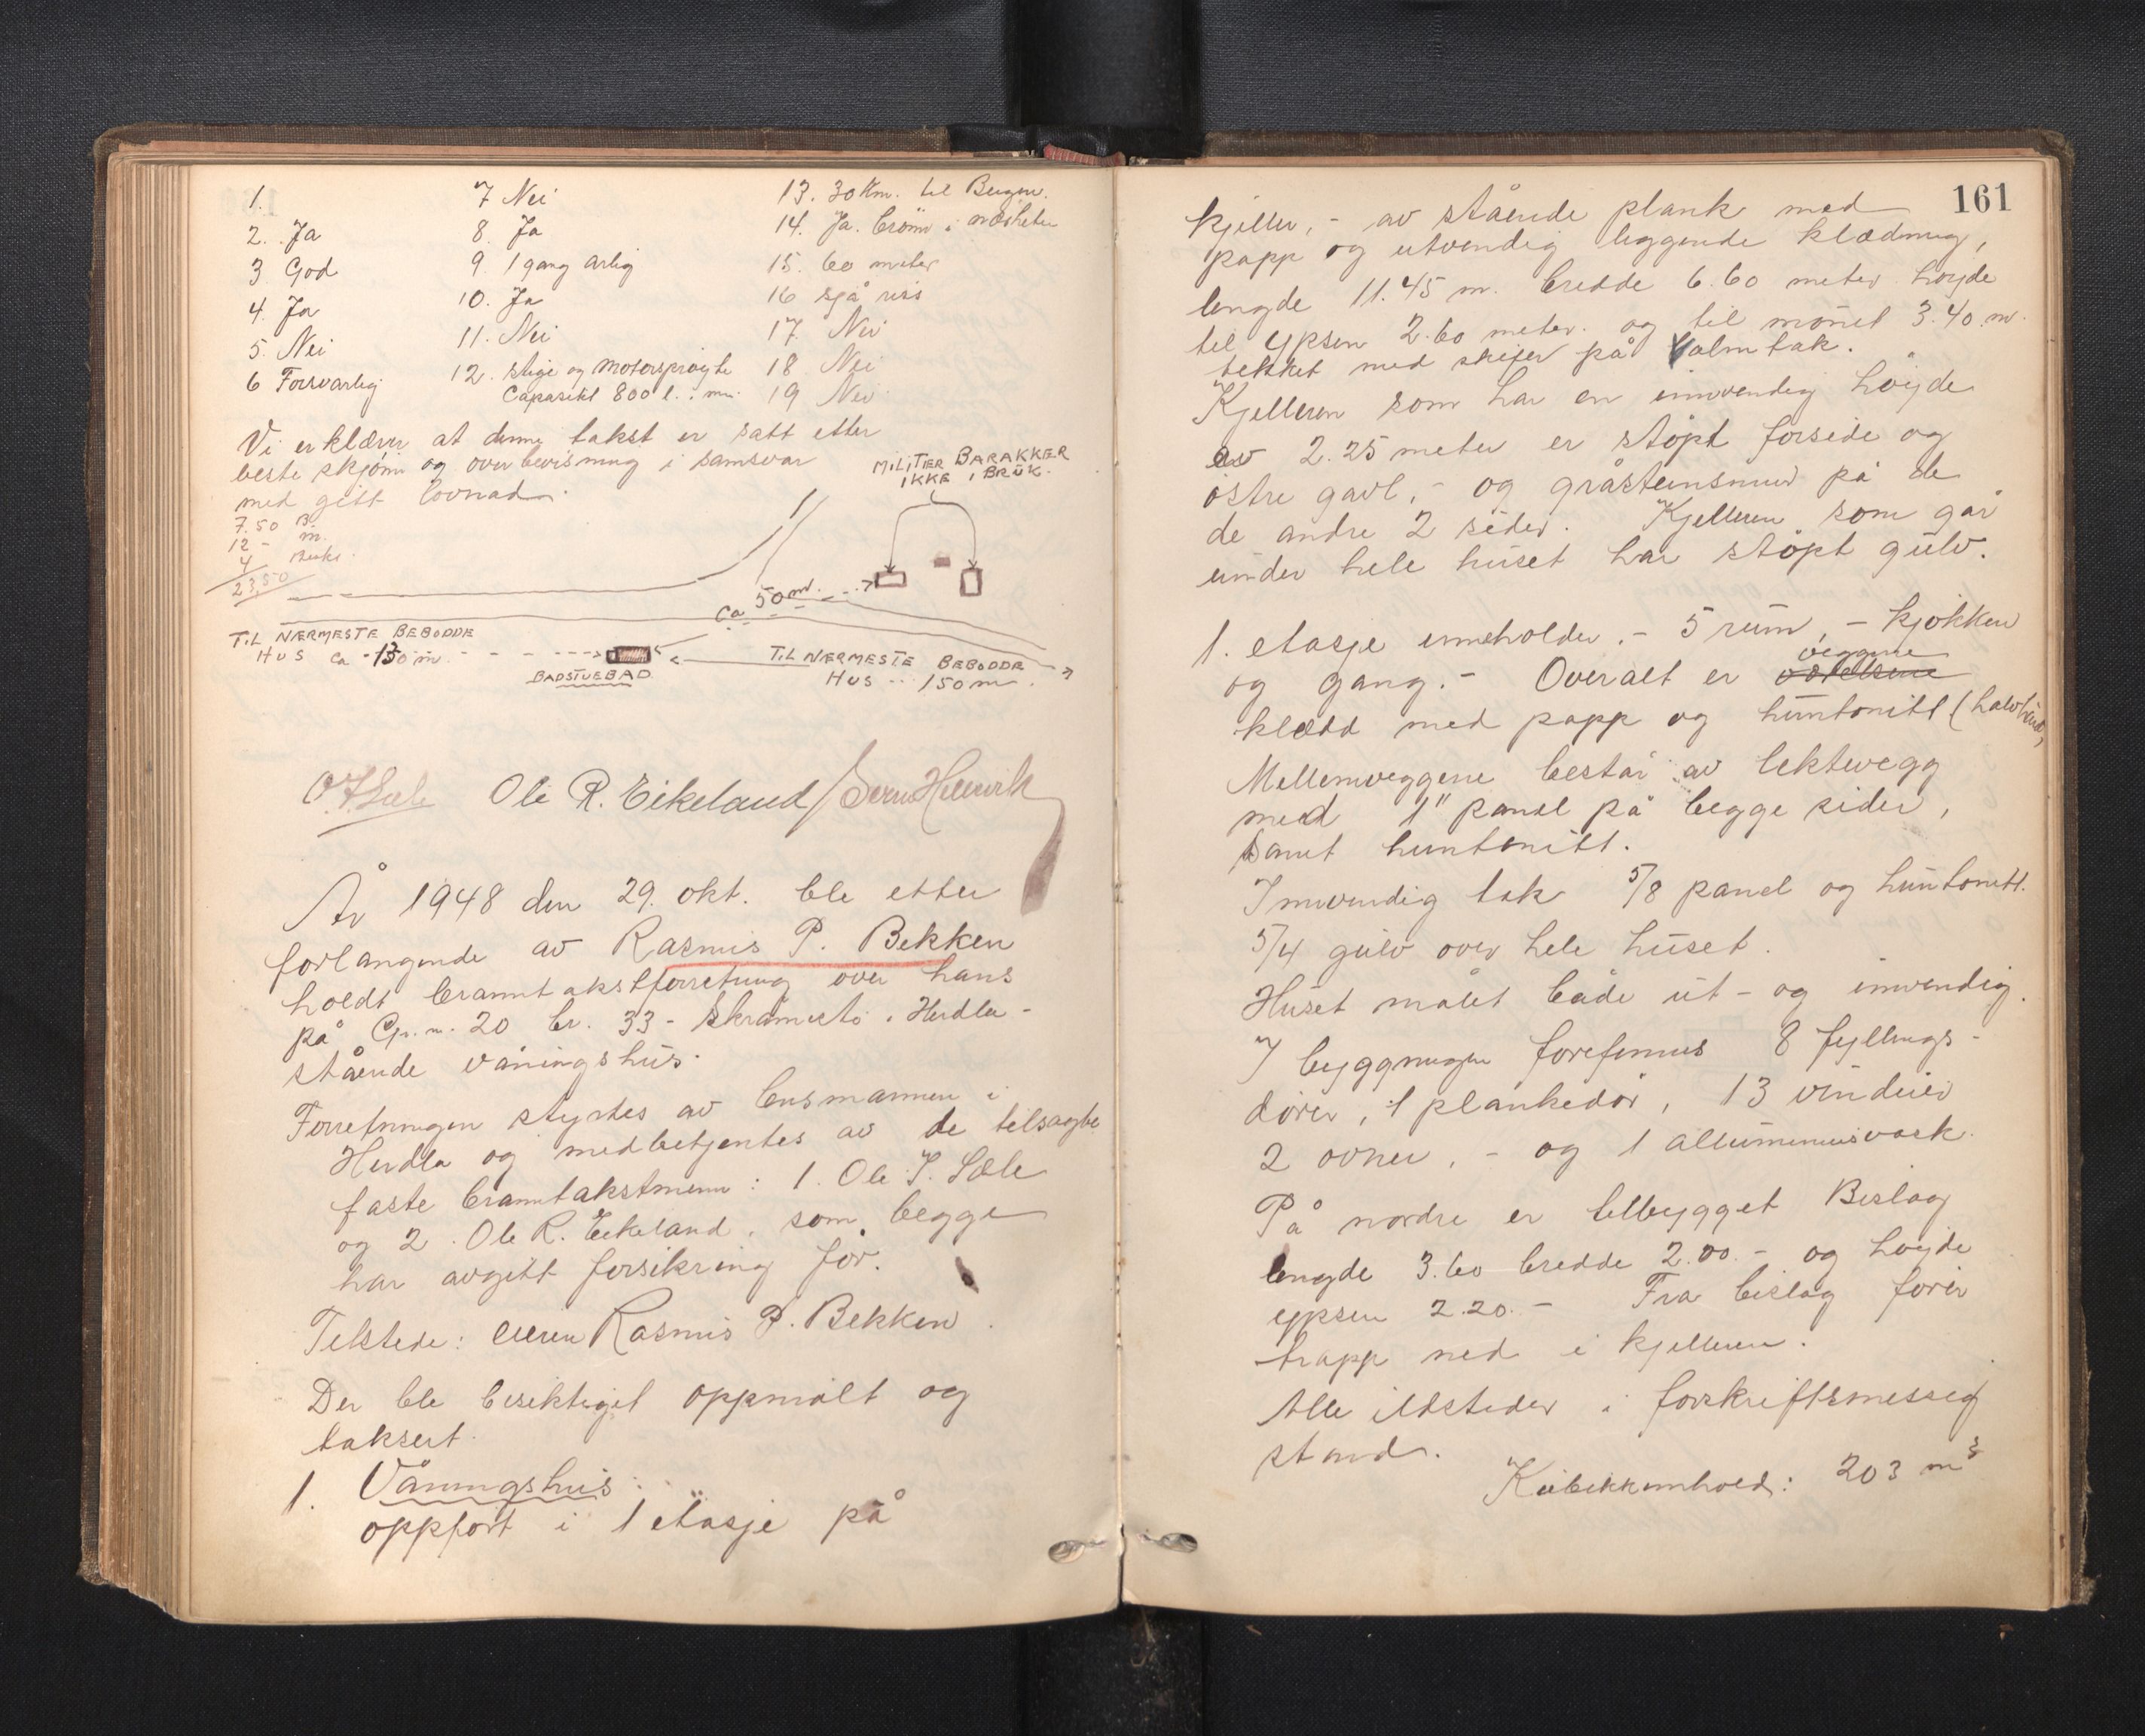 1.
2. Ja
3 God
4. Ja
5. Nei
6 Forsvarlig
7 Nei
8. Ja
9. 1 gang årlig
10. Ja
11. Nei
12. stige og motorsprøyte
Capasitet 800 l. i mi.
13. 30 Km. til Bergen.
14. Ja. brönn i nærheten
15. 60 meter
16 sjå riss
17. Nei
18 Nei
19 Nei
Vi erklærer at denne takst er satt etter
beste skjønn og overbevisning i samsvar
med gitt lovnad.
7.50 B.
12 - m.
4
23,50
MILITÆR BARAKKER
IKKE i BRUK.
ca 50 m.
TIL NÆRMESTE BEBODDE
HUS ca 130 m.
BADSTUEBAD
TIL NÆRMESTE BEBODDE
HUS 150 m.
Ole R. Eikeland
År 1948 den 29. okt. ble etter
forlangende av Rasmus P. Bekken
holdt branntakstforretning over hans
på Gr.n. 20 br. 33 - Skramestø i Herdla -
stående våningshus.
Forretningen styrtes av lensmannen i
Herdla og medbetjentes av de tilsagte
faste branntakstmenn: 1. Ole J. Sæle
og 2. Ole R. Eikeland, som begge
har avgitt forsikring før.
Tilstede: eieren Rasmus P. Bekken.
Der ble besiktiget oppmålt og
taksert.
1. Våningshus:
oppført i 1 etasje på
161
kjeller, - av stående plank med
papp og utvendig liggende klædning,
lengde 11.45 m. bredde 6.60 meter høyde
til ypsen 2.60 meter. og til mønet 3.40 m.
tekket med skifer på Valmtak.
Kjelleren som har en innvendig høyde
av 2.25 meter er støpt forside og
østre gavl, - og gråsteinsmur på de
de andre 2 sider. Kjelleren som går
under hele huset har støpt gulv.
1. etasje inneholder. - 5 rum, - kjøkken
veggene
og gang. - Overalt er værelsene
klædd med papp og huntonitt (halvhård)
Mellemveggene består av lektevegg
med 1" panel på begge sider,
samt huntonitt.
Innvendig tak 5/8 panel og huntonitt.
5/4 gulv over hele huset.
Huset målet både ut - og innvendig.
I byggningen forefinnes 8 fyllings-
dører, 1 plankedør, 13 vinduer
2 ovner, - og 1 alluminiusvask.
På nordre er tilbygget Bislag
lengde 3.60 bredde 2.00. - og høyde
ypsen 2.20. - Fra bislag fører
trapp ned i kjelleren.
Alle ildsteder i forskriftsmessig
stand.
Kubikkinnhold: 203 m³